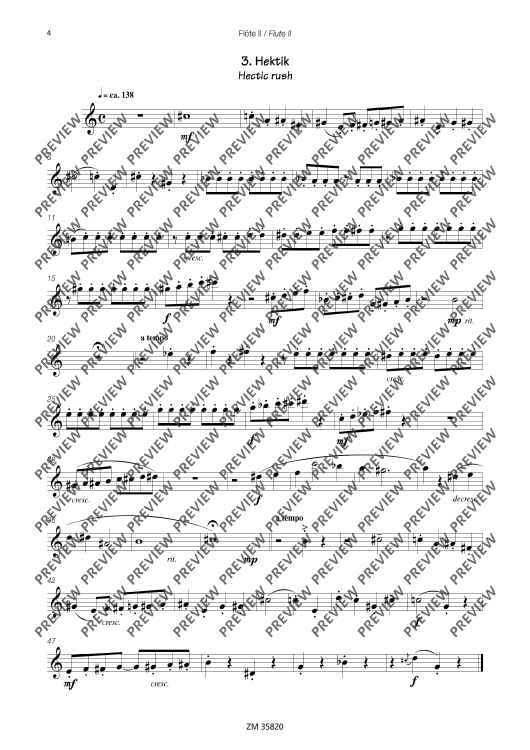 4
Flöte II / Flute II
3. Hektik
Hectic rush
♩ = ca. 138
mf
PREVIEW PREVIEW PREVIEW PREVIEW PREVIEW PREVIEW PREVIEW PREVIEW PREVIEW PREVIEW
11
cresc.
15
f mf mp rit.
20
a tempo
cresc.
25
f mf
cresc. f decresc.
a tempo
rit. mp
42
cresc. f
47
mf cresc. f
ZM 35820